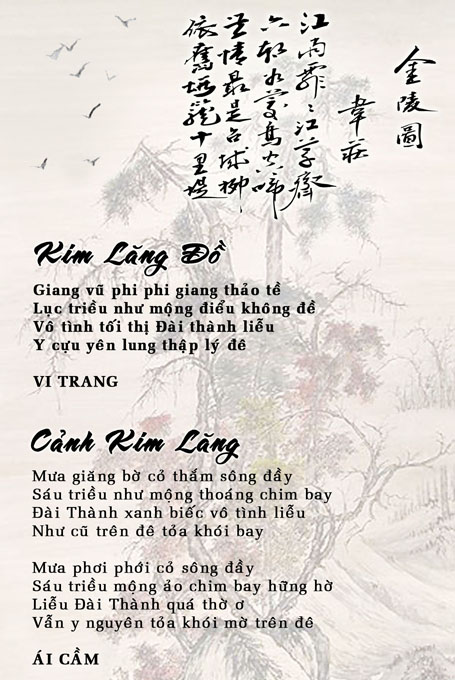 金陵圖
韋莊
江雨霏〻江草齊
六朝如夢鳥空啼
無情最是台城柳
依舊煙籠十里堤
Kim Lăng Đồ
Giang vũ phi phi giang thảo tề
Lục triều như mộng điểu không đề
Vô tình tối thị Đài thành liễu
Y cựu yên lung thập lý đê
VI TRANG
Cảnh Kim Lăng
Mưa giăng bờ cỏ thắm sông đầy
Sáu triều như mộng thoáng chim bay
Đài Thành xanh biếc vô tình liễu
Như cũ trên đê tỏa khói bay
Mưa phơi phới cỏ sông đầy
Sáu triều mộng ảo chim bay hững hờ
Liễu Đài Thành quá thờ ơ
Vẫn y nguyên tỏa khói mờ trên đê
ÁI CẦM